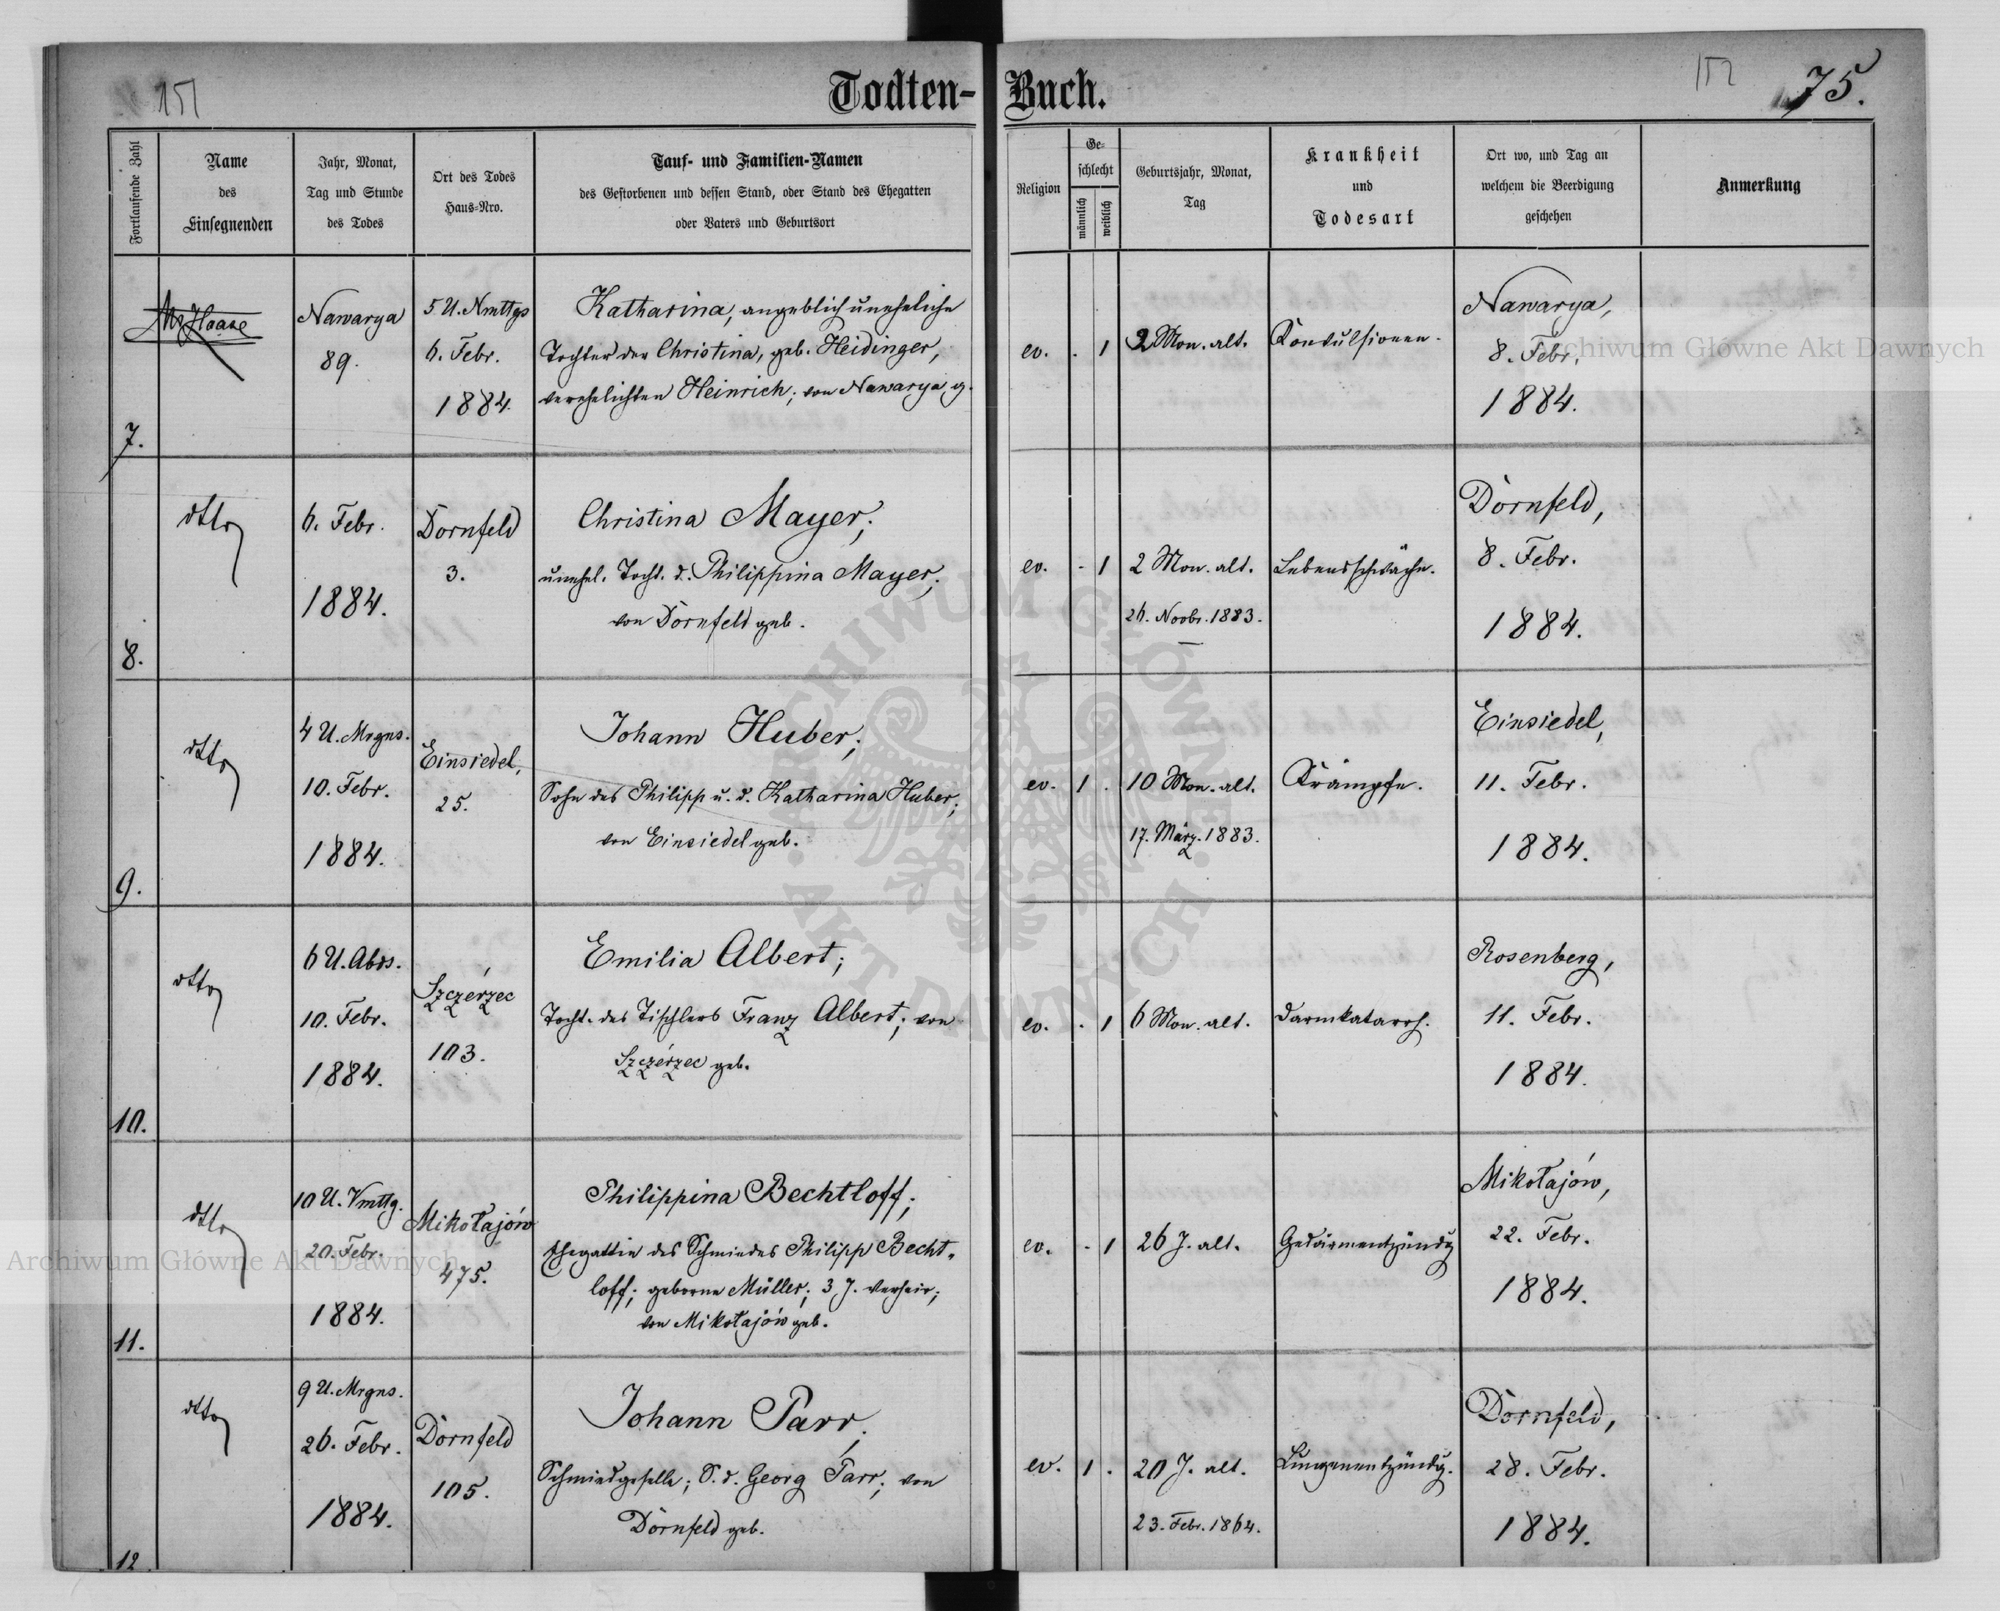 151
Todten-
Buch.
152
75.
Fortlaufende Zahl
Name
des
Einsegnenden
Jahr, Monat,
Tag und Stunde
des Todes
Ort des Todes
Haus-Nro.
Tauf- und Familien-Namen
des Gestorbenen und dessen Stand, oder Stand des Ehegatten
oder Vaters und Geburtsort
Religion
Ge-
schlecht
männlich
weiblich
Geburtsjahr, Monat,
Tag
Krankheit
und
Todesart
Ort wo, und Tag an
welchem die Beerdigung
geschehen
Anmerkung
7.
Haase
Nawarya
89.
5 U. Nmttgs
6. Febr.
1884.
Katharina, angeblich uneheliche
Tochter der Christina, geb. Heidinger,
verehelichten Heinrich; von Nawarya g.
ev. . 1
2 Mon. alt.
Konvulsionen.
Nawarya,
8. Febr.
1884.
8.
dtto
6. Febr.
1884.
Dornfeld
3.
Christina Mayer;
unehel. Tocht. d. Philippina Mayer;
von Dornfeld geb.
ev. - 1
2 Mon. alt.
26. Novbr. 1883.
Lebensschwäche.
Dornfeld,
8. Febr.
1884.
9.
dtto
4 U. Mrgns.
10. Febr.
1884.
Einsiedel,
25.
Johann Huber;
Sohn des Philipp u. d. Katharina Huber;
von Einsiedel geb.
ev. 1 .
10 Mon. alt.
17. März. 1883.
Krämpfe.
Einsiedel,
11. Febr.
1884.
10.
dtto
6 U. Abds.
10. Febr.
1884.
Szczérzec
103.
Emilia Albert;
Tocht. des Tischlers Franz Albert; von
Szczérzec geb.
ev. . 1
6 Mon. alt.
Darmkatarrh.
Rosenberg,
11. Febr.
1884.
11.
dtto
10 U. Vmttg.
20. Febr.
1884.
Mikołajów
475.
Philippina Bechtloff;
Ehegattin des Schmiedes Philipp Becht-
loff; geborne Müller; 3 J. verheir;
von Mikołajów geb.
ev. - 1
26 J. alt.
Gedärmentzündg
Mikołajów,
22. Febr.
1884.
12.
dtto
9 U. Mrgns.
26. Febr.
1884.
Dornfeld
105.
Johann Parr;
Schmiedgeselle; S. d. Georg Parr; von
Dornfeld geb.
ev. 1 .
20 J. alt.
23. Febr. 1864.
Lungenentzündg.
Dornfeld,
28. Febr.
1884.
Archiwum Główne Akt Dawnych
ARCHIWUM GŁÓWNE
AKT DAWNYCH
Archiwum Główne Akt Dawnych